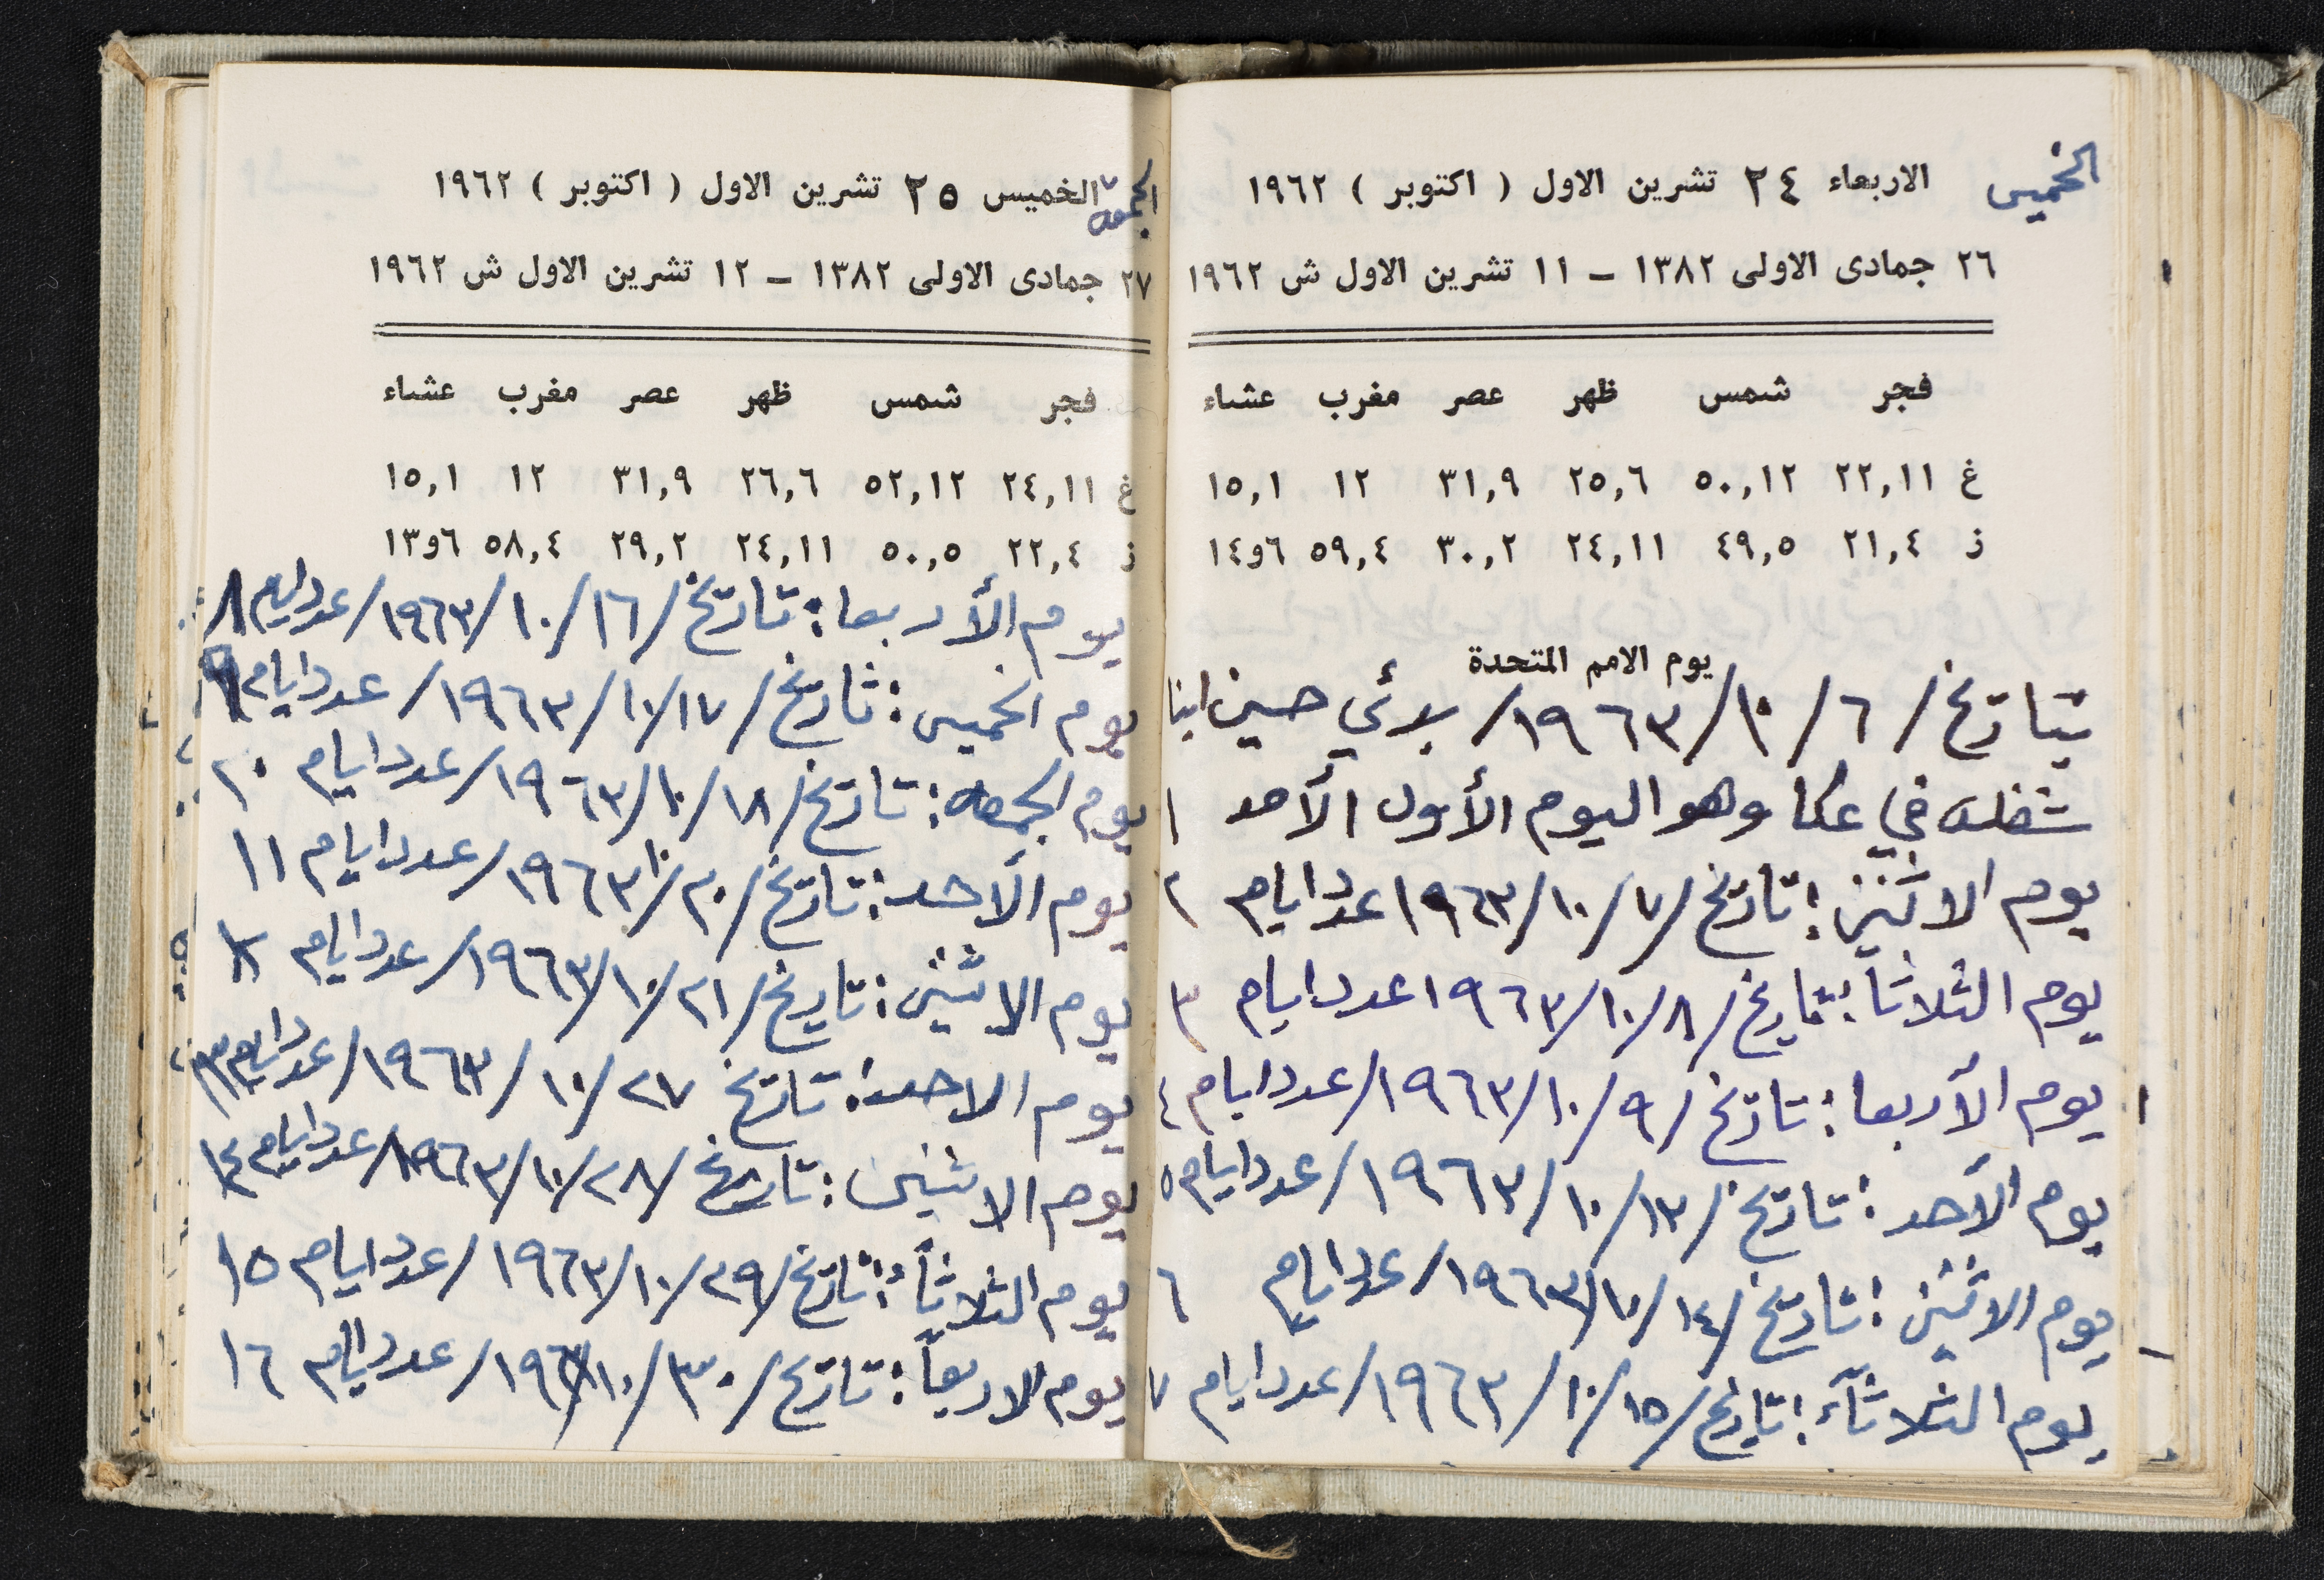 الخميس
الاربعاء ٢٤ تشرين الاول ( اكتوبر ) ١٩٦٢
٢٦ جمادى الاولى ١٣٨٢ – ١١ تشرين الاول ش ١٩٦٢
فجر شمس ظهر عصر مغرب عشاء
غ ٢٢,١١ ٥٠,١٢ ٢٥,٦ ٣١,٩ ١٢ ١٥,١
ز ٢١,٤ ٤٩,٥ ٢٤,١١ ٣٠,٢ ٥٩,٤ ٦و١٤
يوم الامم المتحدة
بتاريخ / ٦ / ١٠ / ١٩٦٣ / بدئي حسين ابنا
شغله في عكا وهو اليوم الأول الأحد ١
يوم الاثنين : تاريخ / ٧ / ١٠ / ١٩٦٣ عدد ايام ٢
يوم الثلاثا : تاريخ / ٨ / ١٠ / ١٩٦٣ عدد ايام ٣
يوم الأربعا : تاريخ / ٩ / ١٠ / ١٩٦٣ / عدد ايام ٤
يوم الأحد : تاريخ / ١٣ / ١٠ / ١٩٦٣ / عدد ايام ٥
يوم الاثنين : تاريخ / ١٤ / ١٠ / ١٩٦٣ / عدد ايام ٦
يوم الثلاثآء : تاريخ / ١٥ / ١٠ / ١٩٦٣ / عدد ايام ٧
الجمعه
الخميس ٢٥ تشرين الاول ( اكتوبر ) ١٩٦٢
٢٧ جمادى الاولى ١٣٨٢ – ١٢ تشرين الاول ش ١٩٦٢
فجر شمس ظهر عصر مغرب عشاء
غ ٢٤,١١ ٥٢,١٢ ٢٦,٦ ٣١,٩ ١٢ ١٥,١
ز ٢٢,٤ ٥٠,٥ ٢٤,١١ ٢٩,٢ ٥٨,٤ ٦و١٣
يوم الأربعا : تاريخ / ١٦ / ١٠ / ١٩٦٣ / عدد ايام ٨
يوم الخميس : تاريخ / ١٧ / ١٠ / ١٩٦٣ / عدد ايام ٩
يوم الجمعه : تاريخ / ١٨ / ١٠ / ١٩٦٣ / عدد ايام ١٠
يوم الأحد : تاريخ / ٢٠ / ١٠ / ١٩٦٣ / عدد ايام ١١
يوم الاثنين : تاريخ / ٢١ / ١٠ / ١٩٦٣ / عدد ايام
يوم الاحد : تاريخ ٢٧ / ١٠ / ١٩٦٣ / عدد ايام ١٣
يوم الاثنين : تاريخ / ٢٨ / ١٠ / ١٩٦٣ / عدد ايام ١٤
يوم الثلاثآ : تاريخ / ٢٩ / ١٠ / ١٩٦٣ / عدد ايام ١٥
يوم الاربعآ : تاريخ / ٣٠ / ١٠ / ١٩٦٣ / عدد ايام ١٦